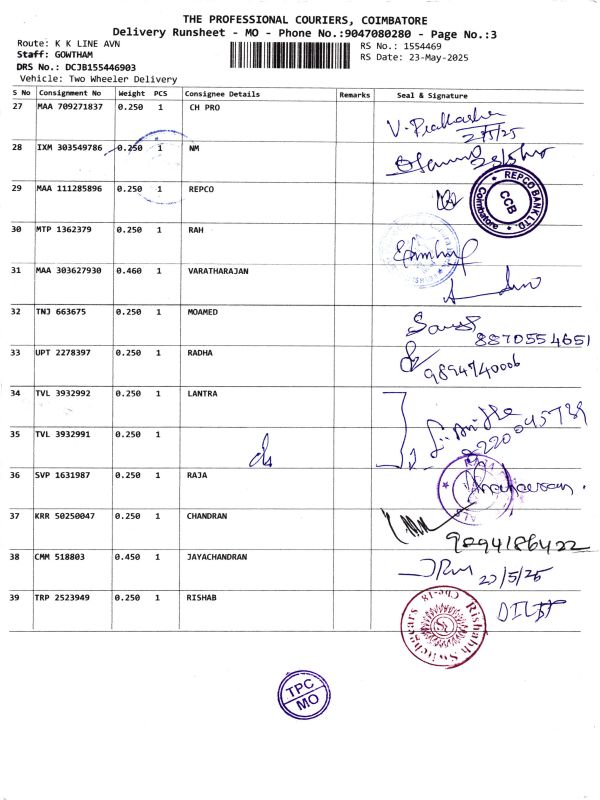 THE PROFESSIONAL COURIERS, COIMBATORE
Delivery Runsheet - MO - Phone No.:9047080280 - Page No.:3
Route: K K LINE AVN
Staff: GOWTHAM
DRS No.: DCJB155446903
Vehicle: Two Wheeler Delivery
RS No.: 1554469
RS Date: 23-May-2025
S No Consignment No Weight PCS Consignee Details Remarks Seal & Signature
27 MAA 709271837 0.250 1 CH PRO V. Prakash
28 IXM 303549786 0.250 1 NM
29 MAA 111285896 0.250 1 REPCO
REPCO BANK LTD. CCB Coimbatore
30 MTP 1362379 0.250 1 RAH
31 MAA 303627930 0.460 1 VARATHARAJAN
32 TNJ 663675 0.250 1 MOAMED
8870554651
33 UPT 2278397 0.250 1 RADHA
9894740006
34 TVL 3932992 0.250 1 LANTRA
35 TVL 3932991 0.250 1
36 SVP 1631987 0.250 1 RAJA
37 KRR 50250047 0.250 1 CHANDRAN
9894186422
38 CMM 518803 0.450 1 JAYACHANDRAN
23/5/25
39 TRP 2523949 0.250 1 RISHAB
Rishabh Switchgears Cbe-18
TPC
MO